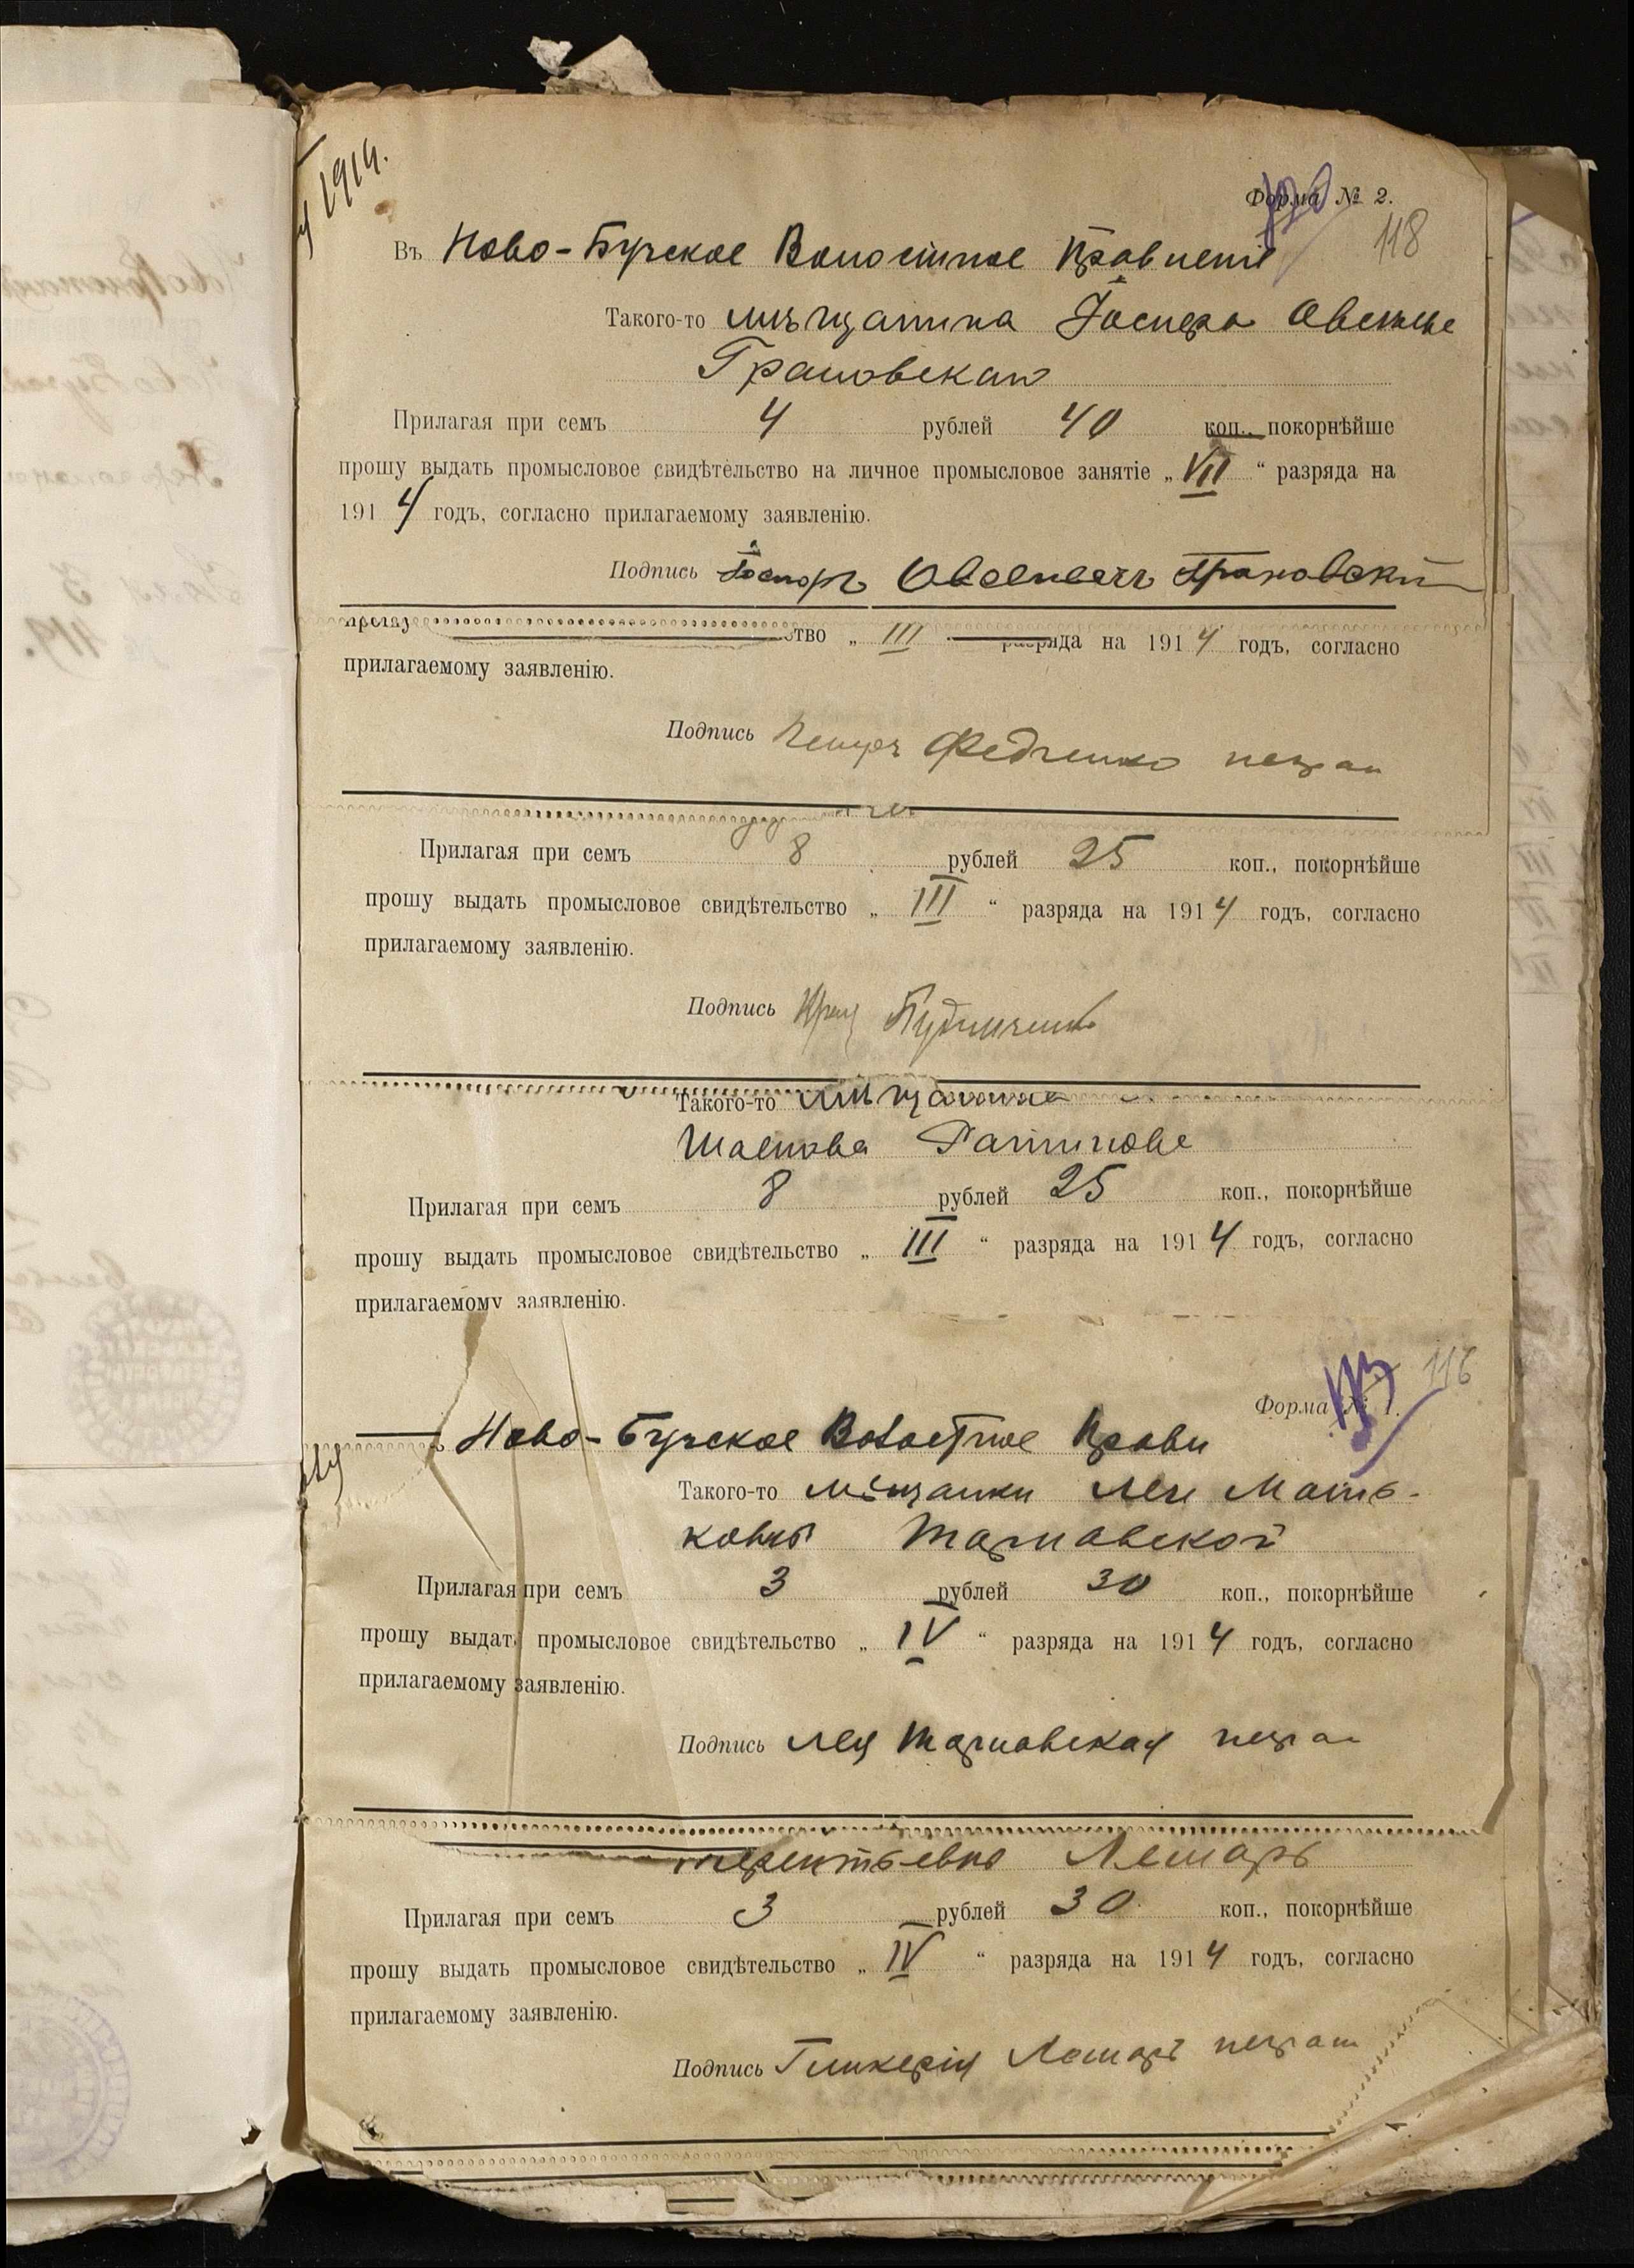 1914.
Форма № 2.
118
Въ Ново-Бугское Волостное Правленіе
Такого-то мѣщанина
Грановскаго
Прилагая при семъ 4 рублей 40 коп., покорнѣйше
прошу выдать промысловое свидѣтельство на личное промысловое занятіе „VII“ разряда на
1914 годъ, согласно прилагаемому заявленію.
Подпись Грановскій
ство „III разряда на 1914 годъ, согласно
прилагаемому заявленію.
Подпись Федченко
Прилагая при семъ 8 рублей 25 коп., покорнѣйше
прошу выдать промысловое свидѣтельство „III“ разряда на 1914 годъ, согласно
прилагаемому заявленію.
Подпись
Такого-то
Прилагая при семъ 8 рублей 25 коп., покорнѣйше
прошу выдать промысловое свидѣтельство „III“ разряда на 1914 годъ, согласно
прилагаемому заявленію.
116
Форма № 1.
Ново-Бугское Волостное Правл
Такого-то мѣщанки Леи Мать-
ковны Тарновской
Прилагая при семъ 3 рублей 30 коп., покорнѣйше
прошу выдать промысловое свидѣтельство „IV“ разряда на 1914 годъ, согласно
прилагаемому заявленію.
Подпись Лея Тарновская неграм
терентьевны Лемаръ
Прилагая при семъ 3 рублей 30 коп., покорнѣйше
прошу выдать промысловое свидѣтельство „IV“ разряда на 1914 годъ, согласно
прилагаемому заявленію.
Подпись Гликерія Лемаръ неграм